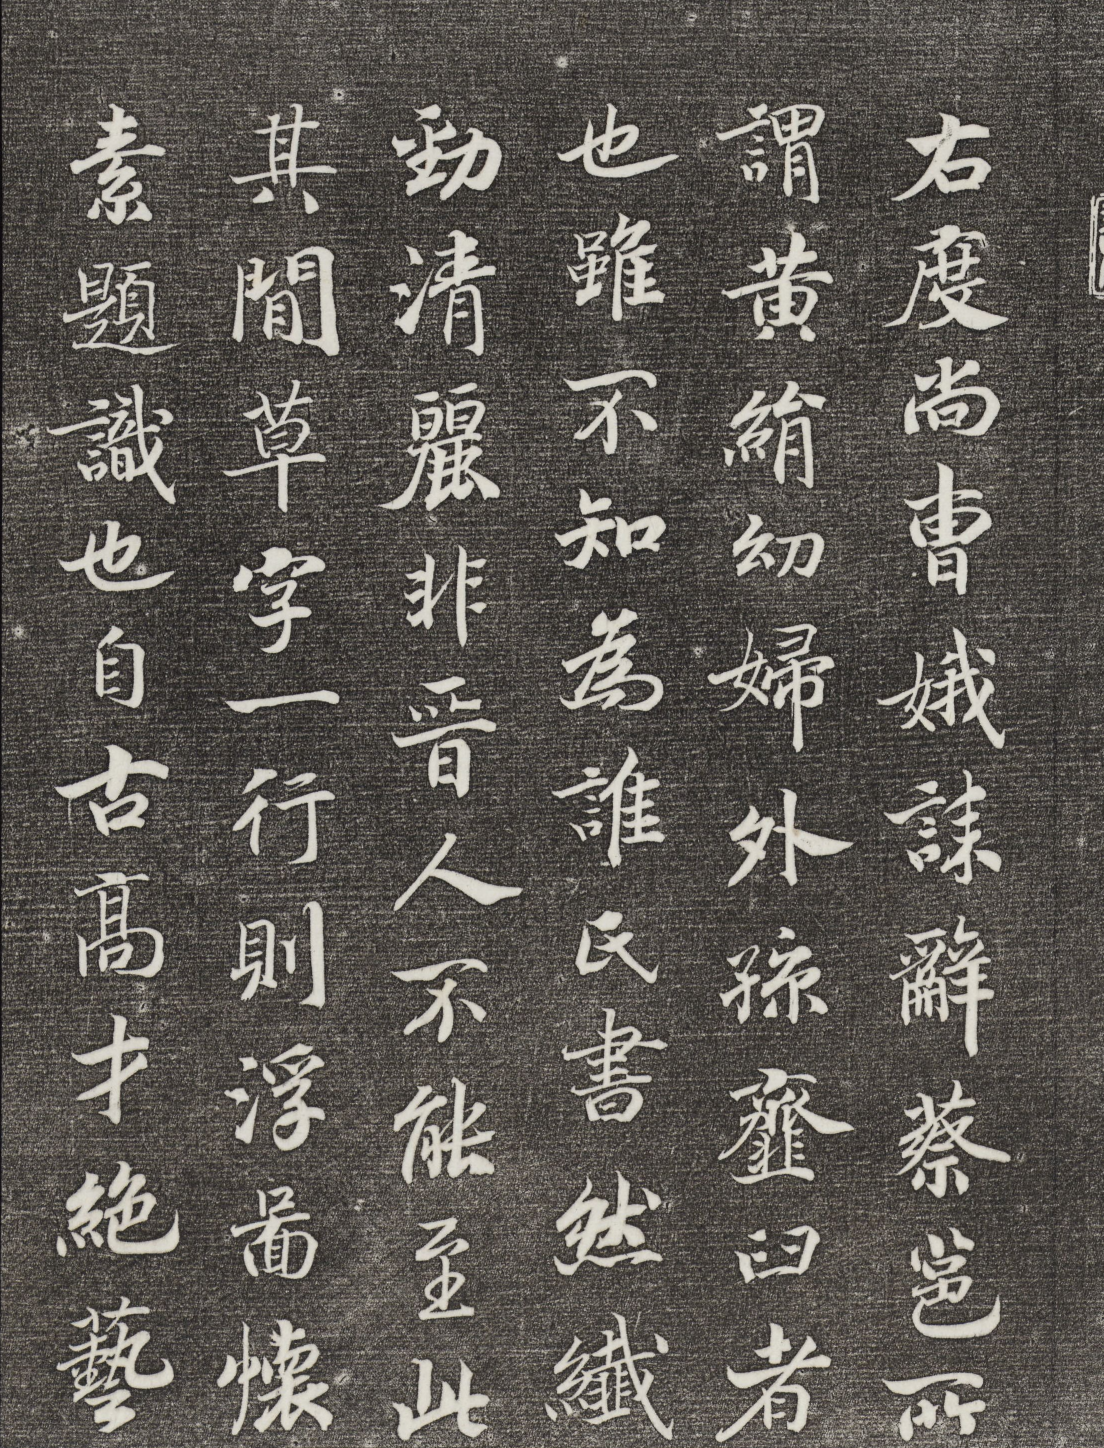 右度尚曹娥誄辭蔡邕所
謂黃絹幼婦外孫韲臼者
也雖不知為誰氏書然纖
勁清麗非晉人不能至此
其間草字一行則浮啚懷
素題識也自古高才絶藝